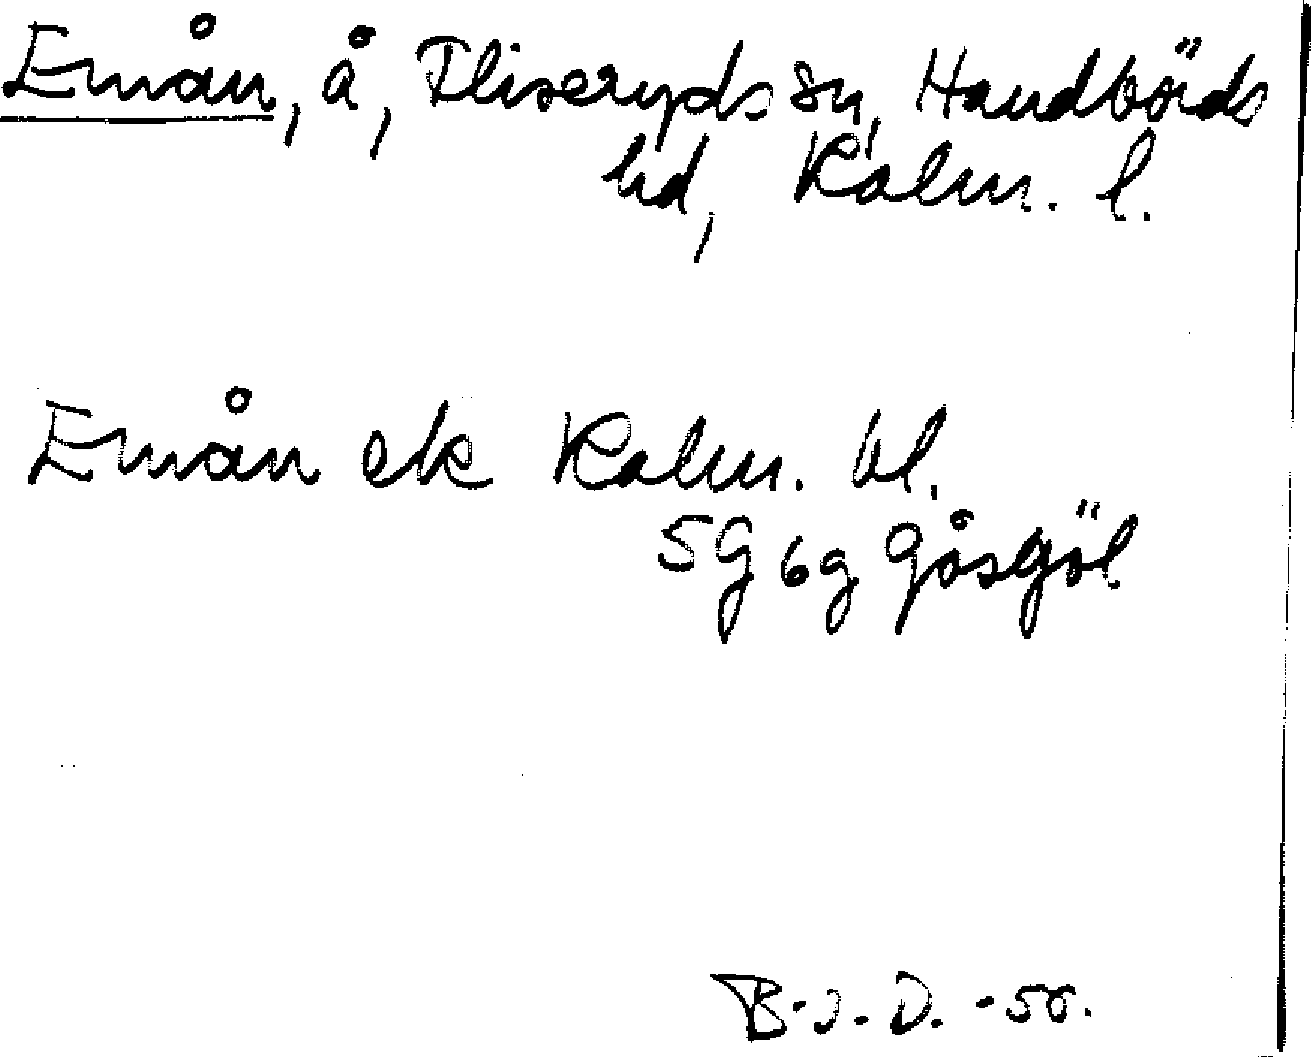 Emån, å, Fliseryds sn, Handbörds
hd, Kalm. l.
Emån ek Kalm. bl.
5G 6g Gåsgöl
B-J. D. -50.